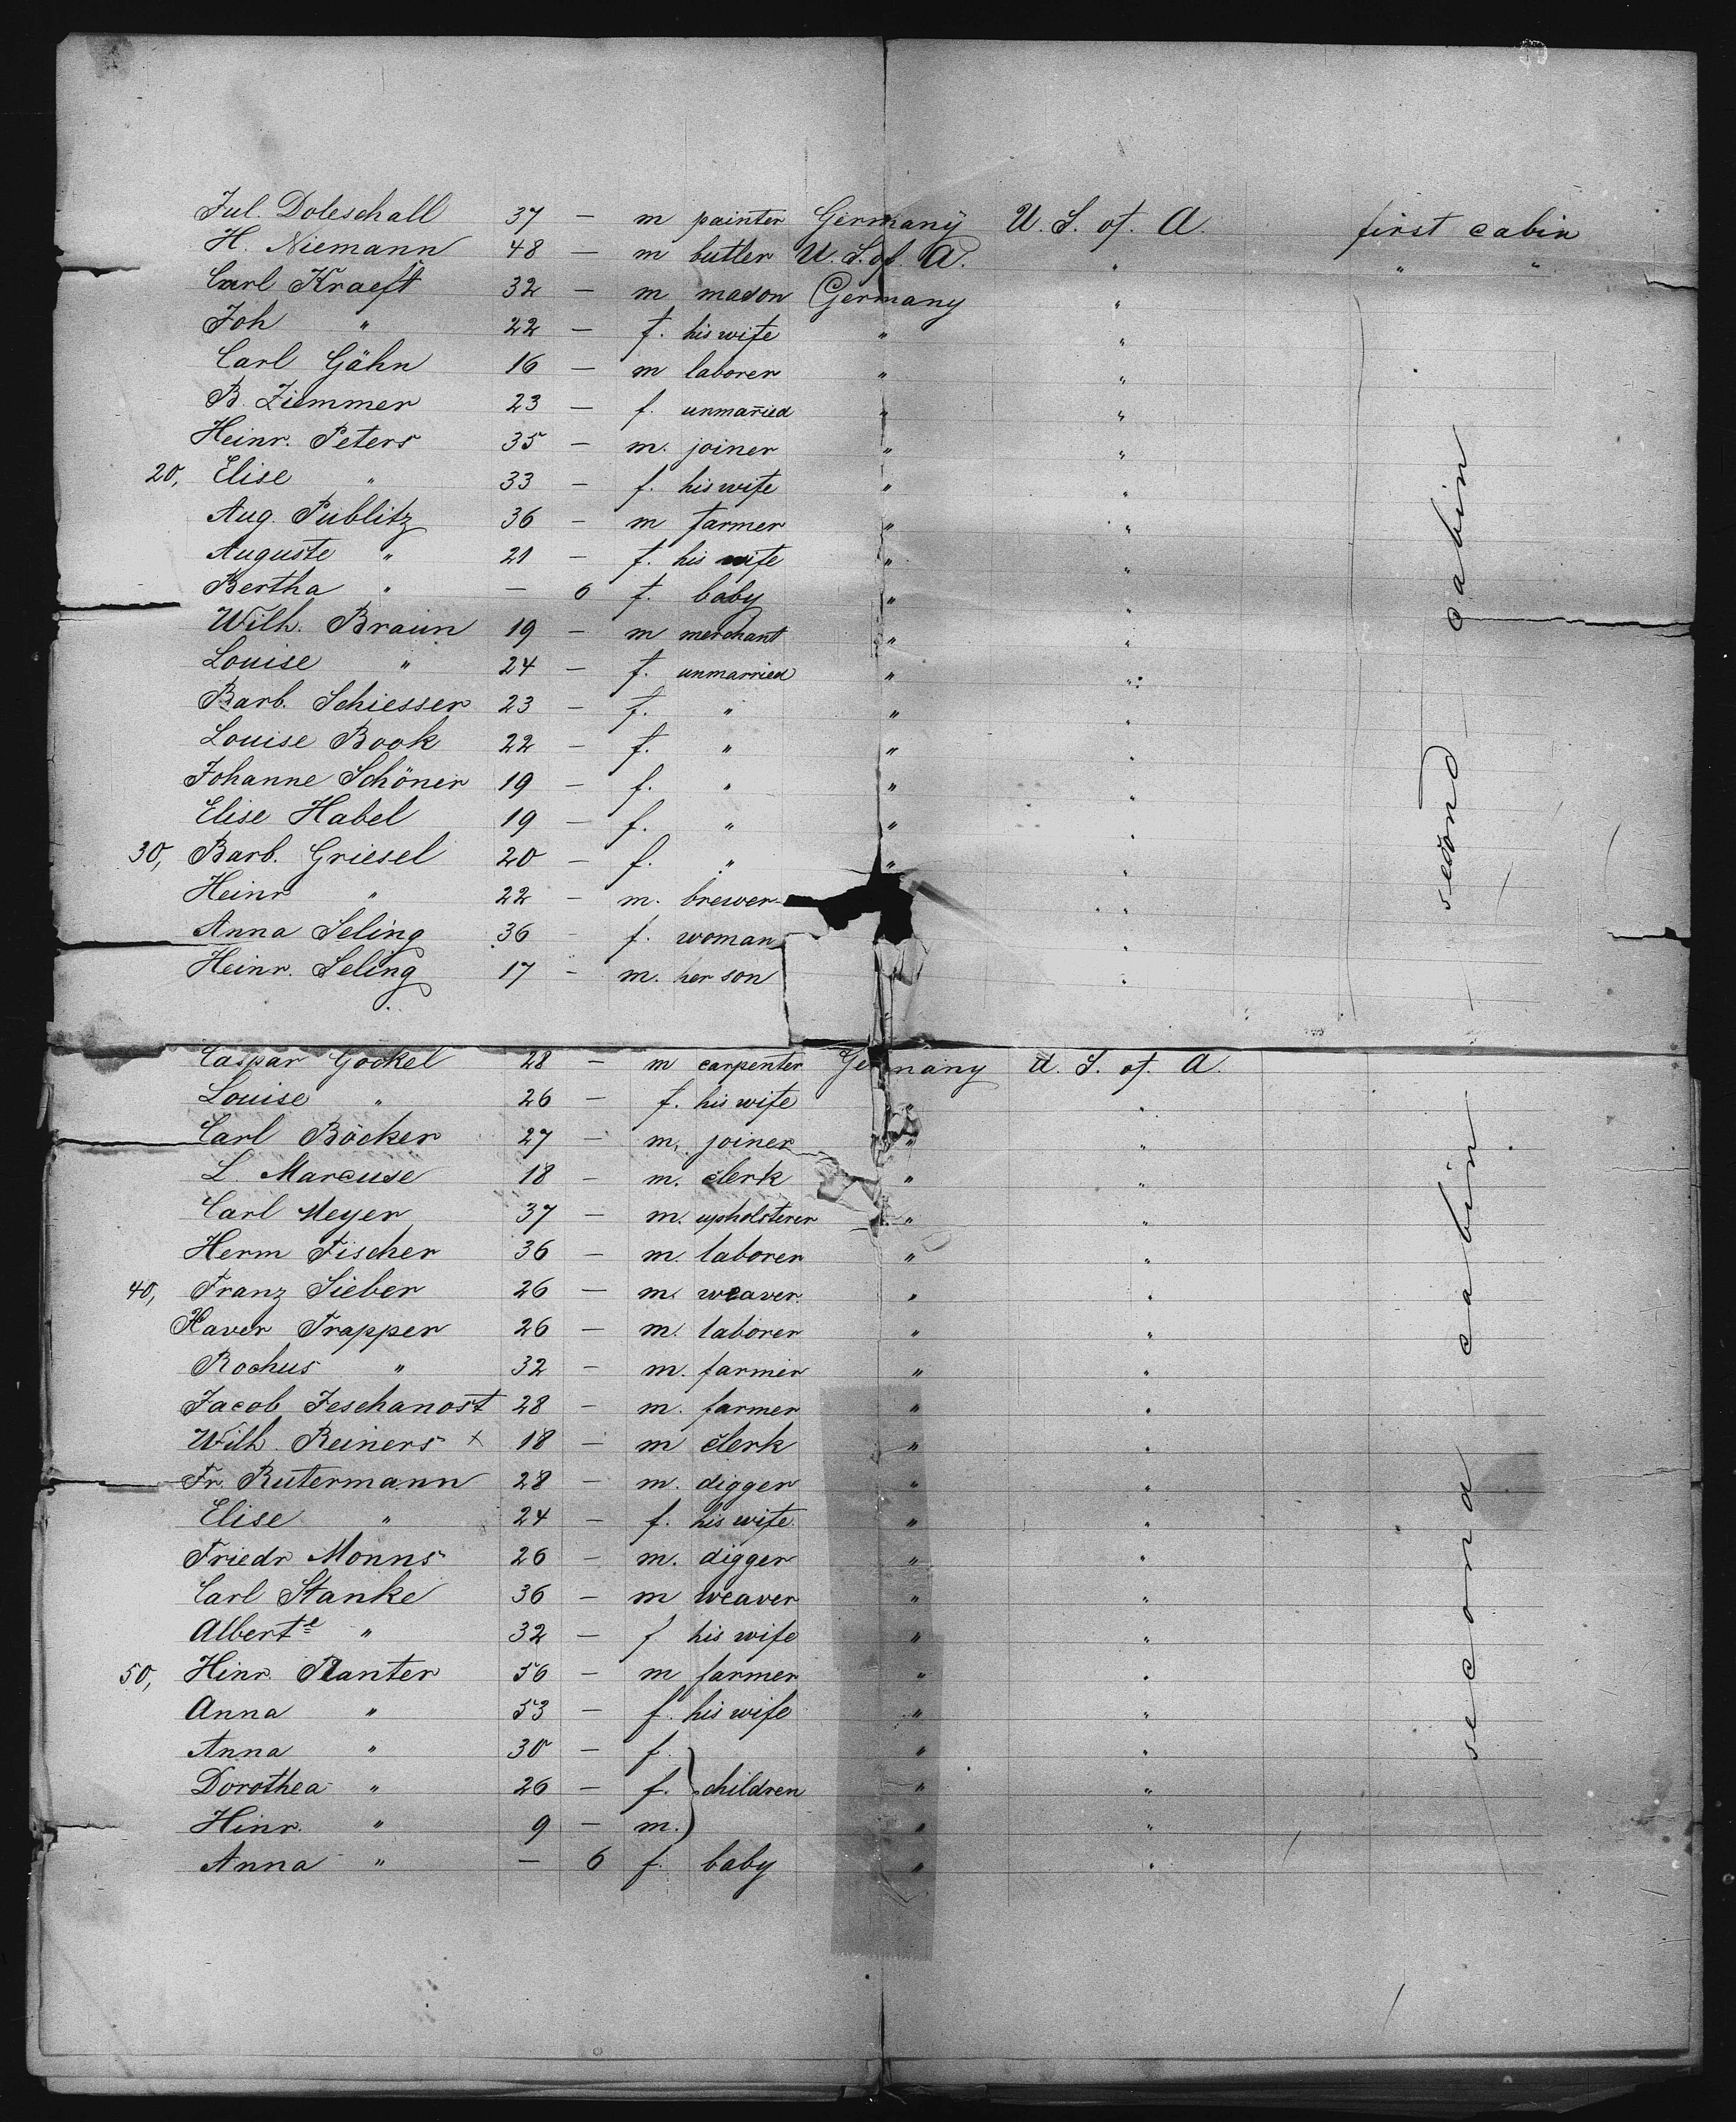 Jul. Doleschall 37 — m painter Germany U. S. of. A. first cabin
H. Niemann 48 — m butler U. S. of. A. " " "
Carl Kraeft 32 — m mason Germany "
Joh " 22 — f. his wife " "
Carl Gähn 16 — m laborer " "
B. Ziemmer 23 — f. unmarried " "
Heinr. Peters 35 — m. joiner " "
20, Elise " 33 — f. his wife " "
Aug. Publitz 36 — m farmer " "
Auguste " 21 — f. his wife " "
Bertha " — 6 f. baby " "
Wilh. Braun 19 — m merchant " "
Louise " 24 — f. unmarried " "
Barb. Schiesser 23 — f. " " "
Louise Book 22 — f. " " "
Johanne Schöner 19 — f. " " "
Elise Habel 19 — f. " " "
30, Barb. Griesel 20 — f. " " "
Heinr " 22 — m. brewer "
Anna Seling 36 — f. woman "
Heinr. Seling 17 — m. her son "
second cabin
Caspar Gockel 28 — m carpenter Germany U. S. of. A.
Louise " 26 — f. his wife " "
Carl Böcker 27 — m. joiner " "
L. Marcuse 18 — m. clerk " "
Carl Meyer 37 — m. upholsterer " "
Herm Fischer 36 — m. laborer " "
40, Franz Sieber 26 — m. weaver. " "
Xaver Trapper 26 — m. laborer " "
Rochus " 32 — m. farmer " "
Jacob Jeschanost 28 — m. farmer " "
Wilh. Reiners x 18 — m clerk " "
Fr. Rutermann 28 — m. digger " "
Elise " 24 — f. his wife. " "
Friedr Monns 26 — m. digger " "
Carl Stanke 36 — m weaver " "
Alberte " 32 — f his wife " "
50, Hinr. Planter 56 — m farmer " "
Anna " 53 — f. his wife " "
Anna " 30 — f. " "
Dorothea " 26 — f. children " "
Hinr. " 9 — m. " "
Anna " — 6 f. baby " "
second cabin